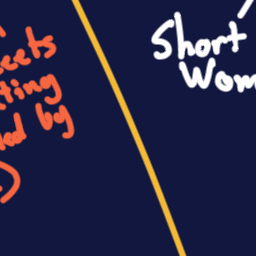 eets
ting
ed by
)
Short
Wom